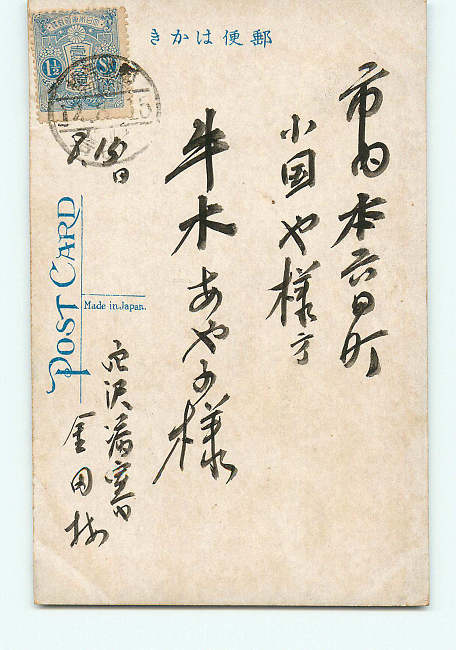 郵便はかき
市内本六日町
小国や様方
牛木あや子様
8.15日
病室内
金田梅
POST CARD
Made in Japan.
1½ Sn